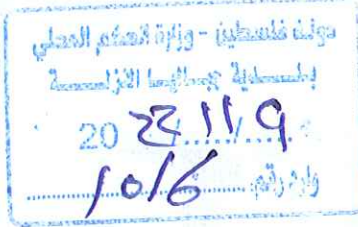 دولة فلسطين - وزارة الحكم المحلي
بلدية جباليا النزلة
20 22 / 11 / 9
وارد رقم: 1016